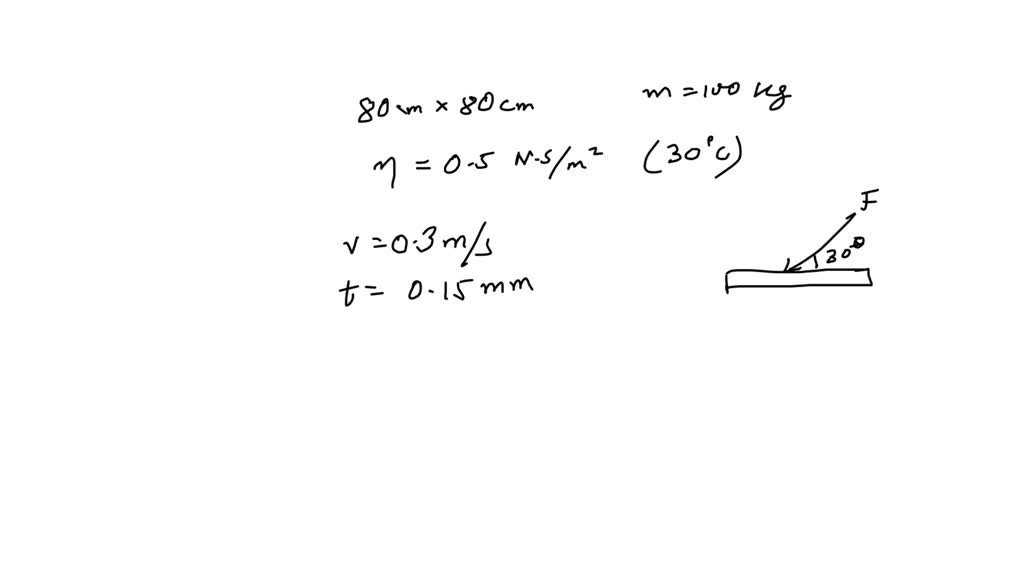 80 cm × 80 cm
m = 100 kg
η = 0.5 N-S/m² (30°C)
v = 0.3 m/s
t = 0.15 mm
F
30°